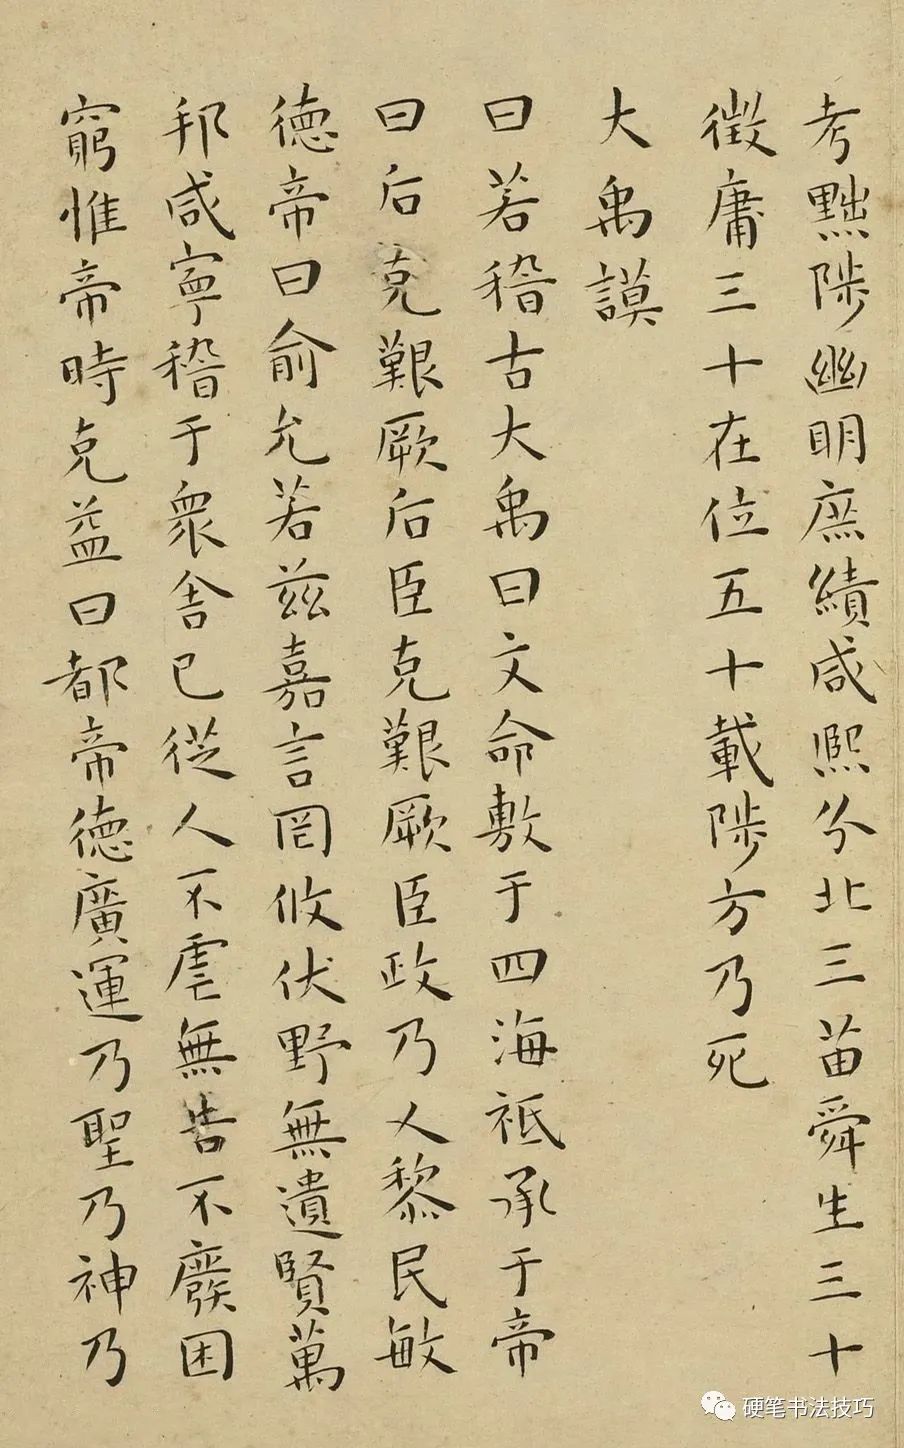 考黜陟幽明庶績咸熙分北三苗舜生三十
徵庸三十在位五十載陟方乃死
大禹謨
曰若稽古大禹曰文命敷于四海祗承于帝
曰后克艱厥后臣克艱厥臣政乃乂黎民敏
德帝曰俞允若茲嘉言罔攸伏野無遺賢萬
邦咸寧稽于衆舍己從人不虐無告不廢困
窮惟帝時克益曰都帝德廣運乃聖乃神乃
硬笔书法技巧